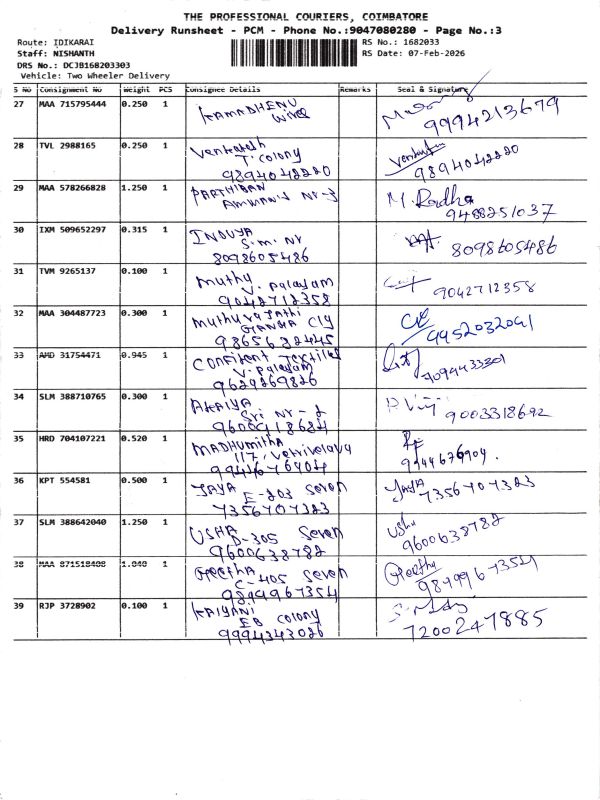 THE PROFESSIONAL COURIERS, COIMBATORE
Delivery Runsheet - PCM - Phone No.:9047080280 - Page No.:3
Route: IDIKARAI RS No.: 1682033
Staff: NISHANTH RS Date: 07-Feb-2026
DRS No.: DCJB168203303
Vehicle: Two Wheeler Delivery
S No Consignment No Weight PCS Consignee Details Remarks Seal & Signature
27 MAA 715795444 0.250 1 KAMADHENU
Wire 9994213679
28 TVL 2988165 0.250 1 Venkatesh
T. Colony
9894042220 9894042220
29 MAA 578266828 1.250 1 PARTHIBAN M. Radha
Amman's Nr-3 9488251037
30 IXM 509652297 0.315 1 INDUYA
S.M. Nr
8098605486 8098605486
31 TVM 9265137 0.100 1 Muthy
V. Palayam
9042712358 9042712358
32 MAA 304487723 0.300 1
GANGA City
9865682445 9952032091
33 AMD 31754471 0.945 1 Textiles
V. Palayam
9629269826
34 SLM 388710765 0.300 1
Sri Nr-2
9003318692
35 HRD 704107221 0.520 1 MADHUMITHA
117,
9944676904 9944676904.
36 KPT 554581 0.500 1 JAYA Jaya
E-203 Seven
7356707323 7356707323
37 SLM 388642040 1.250 1 USHA Usha
D-305 Seven
9600638782 9600638782
38 MAA 871518408 1.040 1 Geetha Geetha
C-405 Seven
9899967354 9899967354
39 RJP 3728902 0.100 1 KALYANI
EB Colony
9994343026 7200247885